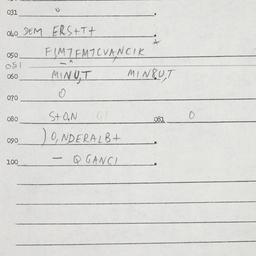 031 0
040 DEM ERS+T+
050 F1M7FM7CVANCIK
051 —
060 MINU,T MINRU,T
070 0
080 S+O,N 081 0
090 )O,NDERALB+
100 — Q GANCI